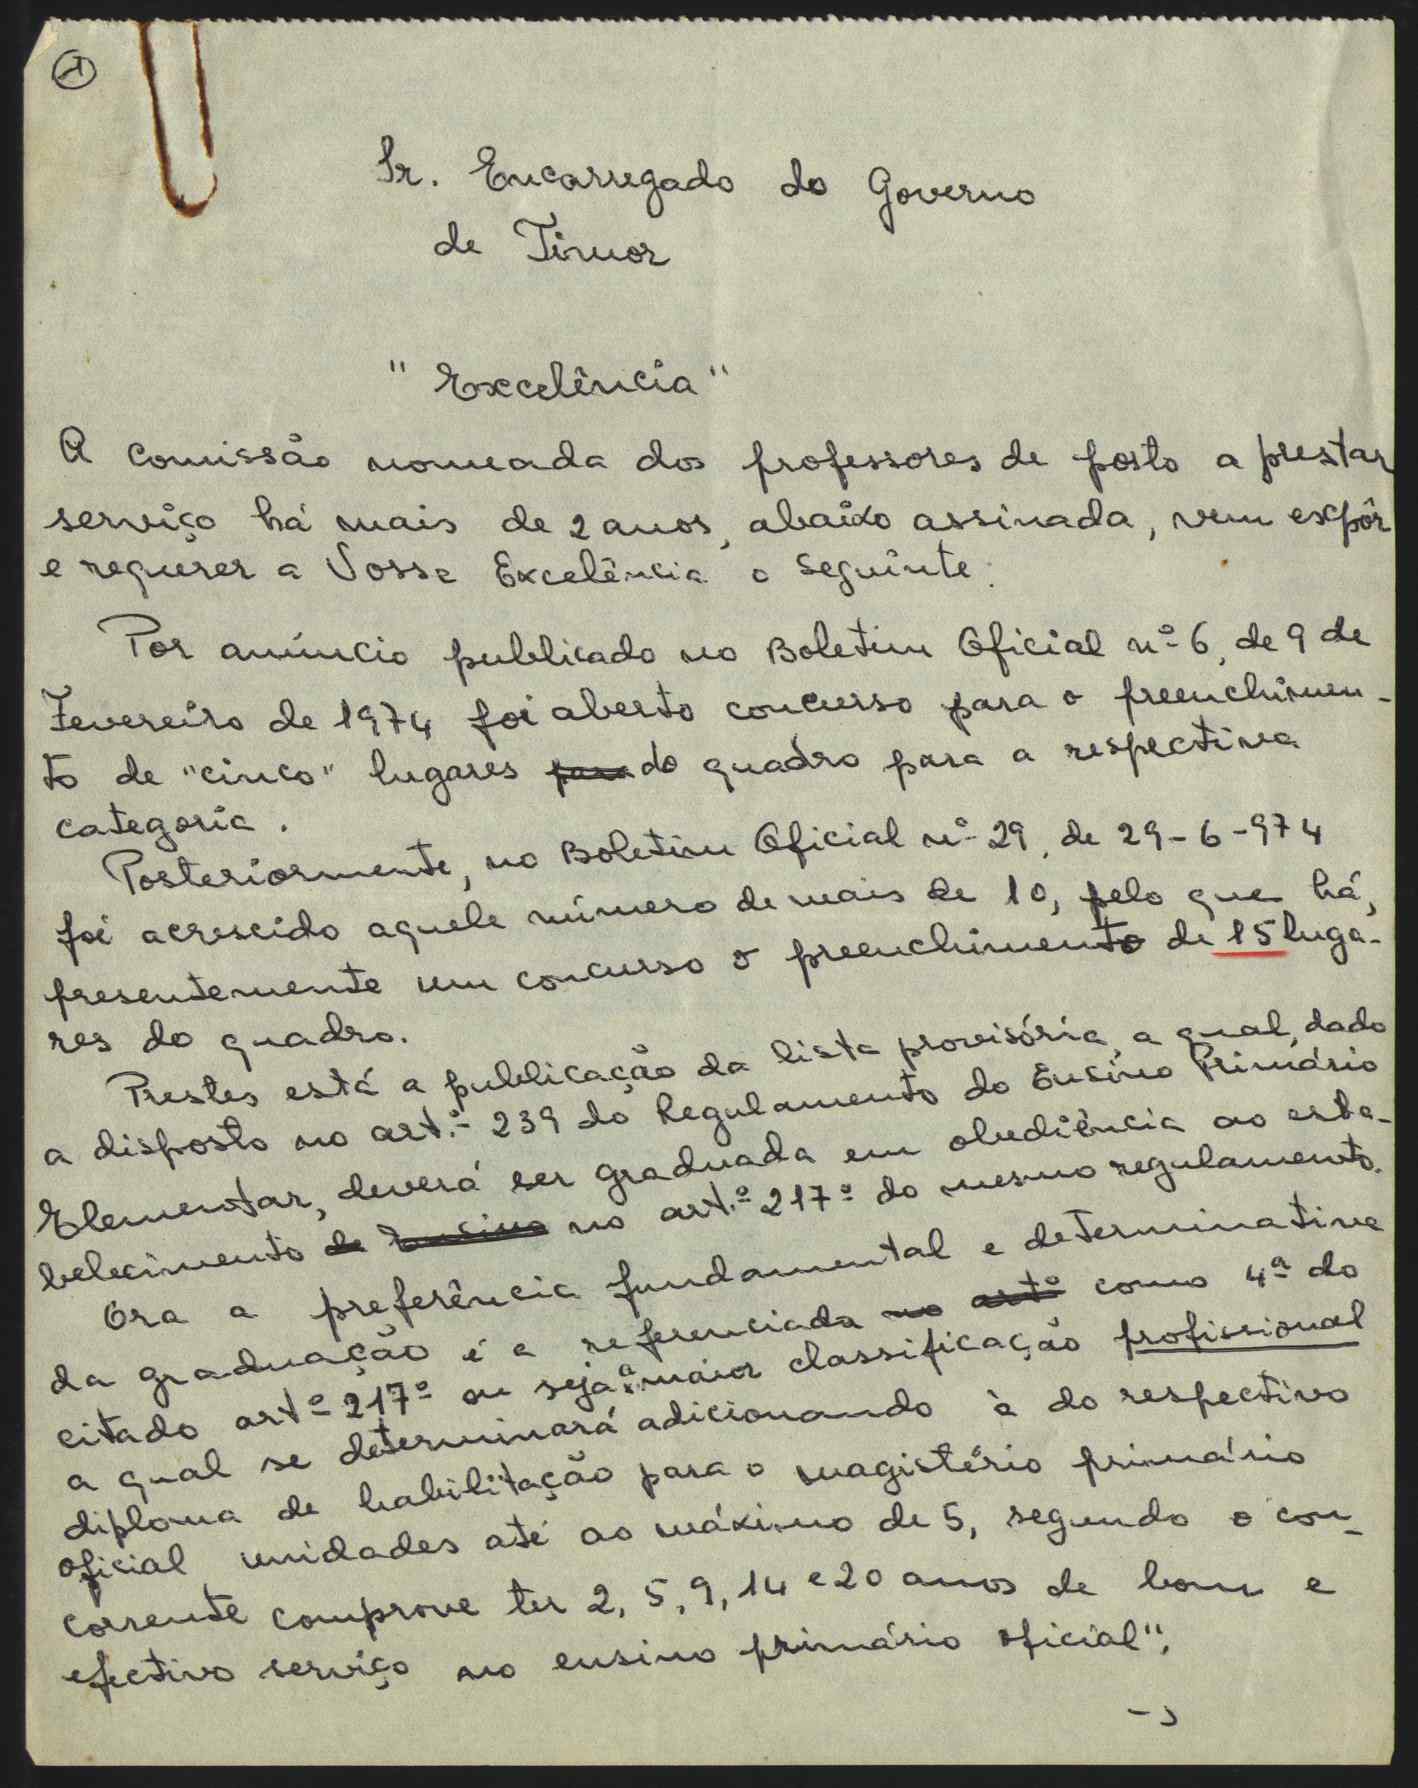 1
Sr. Encarregado do Governo
de Timor
" Excelência "
A comissão nomeada dos professores de posto a prestar
serviço há mais de 2 anos, abaixo assinada, vem expôr
e requerer a Vossa Excelência o seguinte:
Por anúncio publicado no Boletim Oficial nº 6, de 9 de
Fevereiro de 1974 foi aberto concurso para o preenchimen-
to de "cinco" lugares para do quadro para a respectiva
categoria.
Posteriormente, no Boletim Oficial nº 29, de 29-6-974
foi acrescido aquele número de mais de 10, pelo que há,
presentemente um concurso o preenchimento de 15 luga-
res do quadro.
Prestes está a publicação da lista provisória, a qual, dado
a disposto no art.º 239 do Regulamento do Ensino Primário
Elementar, deverá ser graduada em obediência ao esta-
belecimento de Ensino no art.º 217º do mesmo regulamento.
Ora a preferência fundamental e determinativa
da graduação é a referenciada no artº como 4ª do
citado artº 217º ou seja "a maior classificação profissional
a qual se determinará adicionando à do respectivo
diploma de habilitação para o magistério primário
oficial unidades até ao máximo de 5, segundo o con-
corrente comprove ter 2, 5, 9, 14 e 20 anos de bom e
efectivo serviço no ensino primário oficial".
->